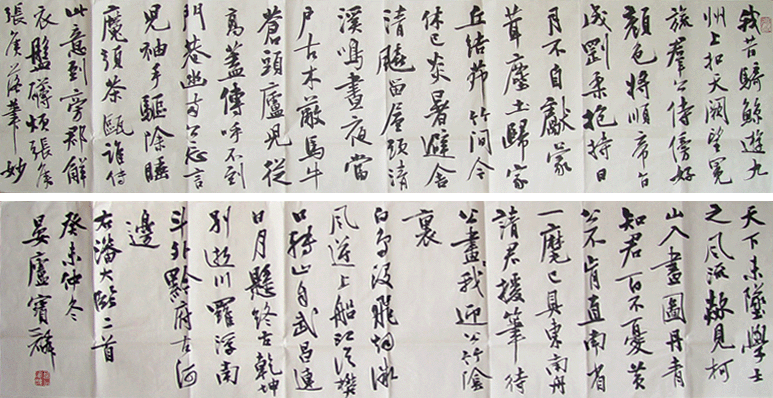 我昔騎鯨遊九
州上扣天闕望冕
旒羣公侍傍好
顏色將順帝旨
成剛柔抱持日
月不自獻蒙
茸塵土歸家
丘結茆竹間今
休已炎暑避舍
清飈留屋頭清
溪鳴晝夜當
戶古木蔽馬牛
蒼頭廬兒從
高蓋傳呼不到
門巷幽与公忘言
兒袖手驅除睡
魔須茶甌誰侍
此意到旁郡解
衣盤礴煩張侯
張侯落筆妙
天下未墜學士
之風流類見柯
山入畫圖丹青
知君百不憂黃
公不肯直南省
一麾已具東南舟
請君援筆待
公畫我迎公竹陰
裏
白鳥沒飛烟微
風逆上船江從樊
口轉山自武昌連
日月懸終古乾坤
別逝川羅浮南
斗外黔府古河
邊
右潘大臨二首
癸未仲冬
晏廬寶麟